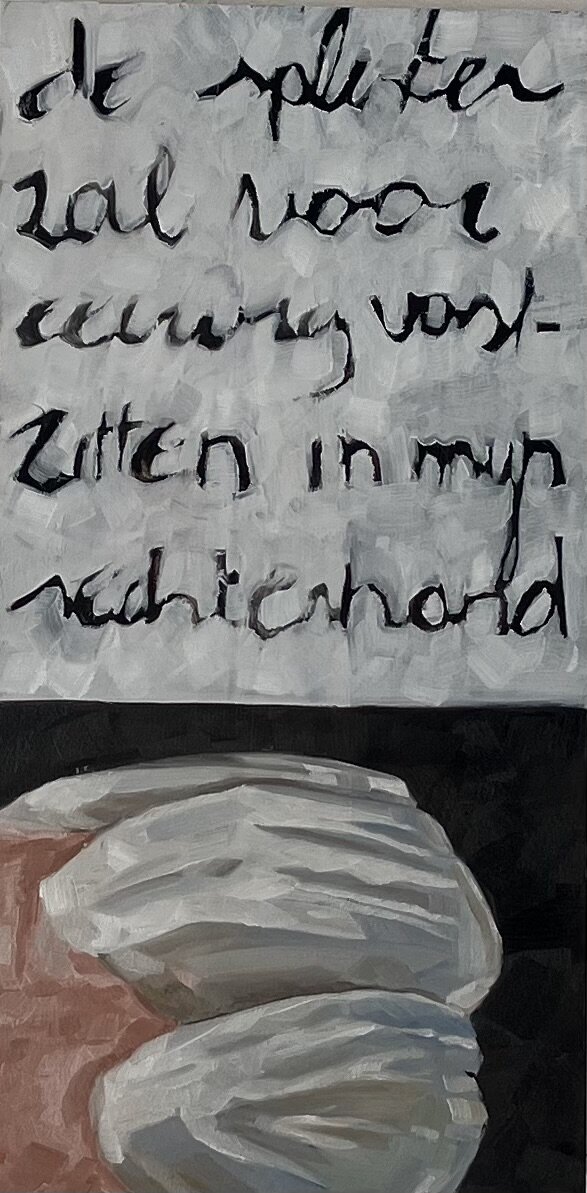 de splinter
zal voor
eeuwig vast-
zitten in mijn
rechterhand